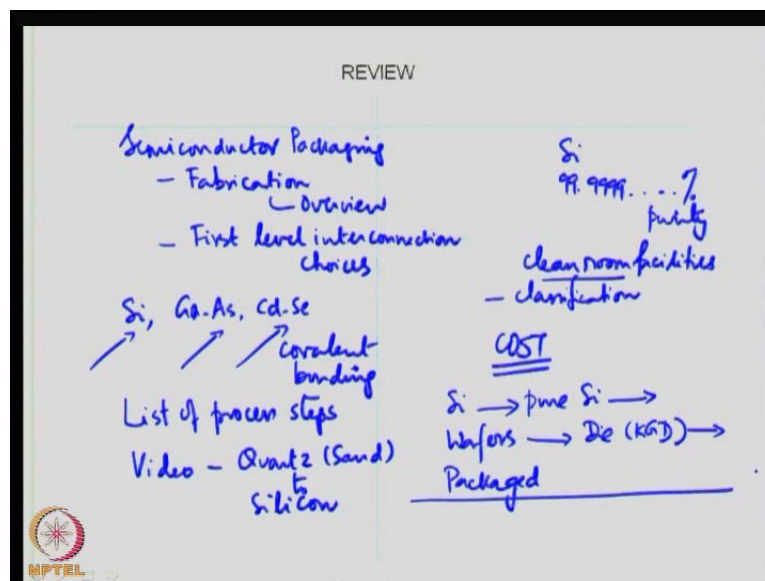 REVIEW
Semiconductor Packaging
- Fabrication
Overview
- First level interconnection
choices
Si, Ga-As, Cd-Se
covalent
bonding
List of process steps
Video - Quartz (Sand)
to
Silicon
Si
99.9999....%
purity
clean room facilities
- classification
COST
Si → pure Si →
Wafers → Die (KGD) →
Packaged
NPTEL